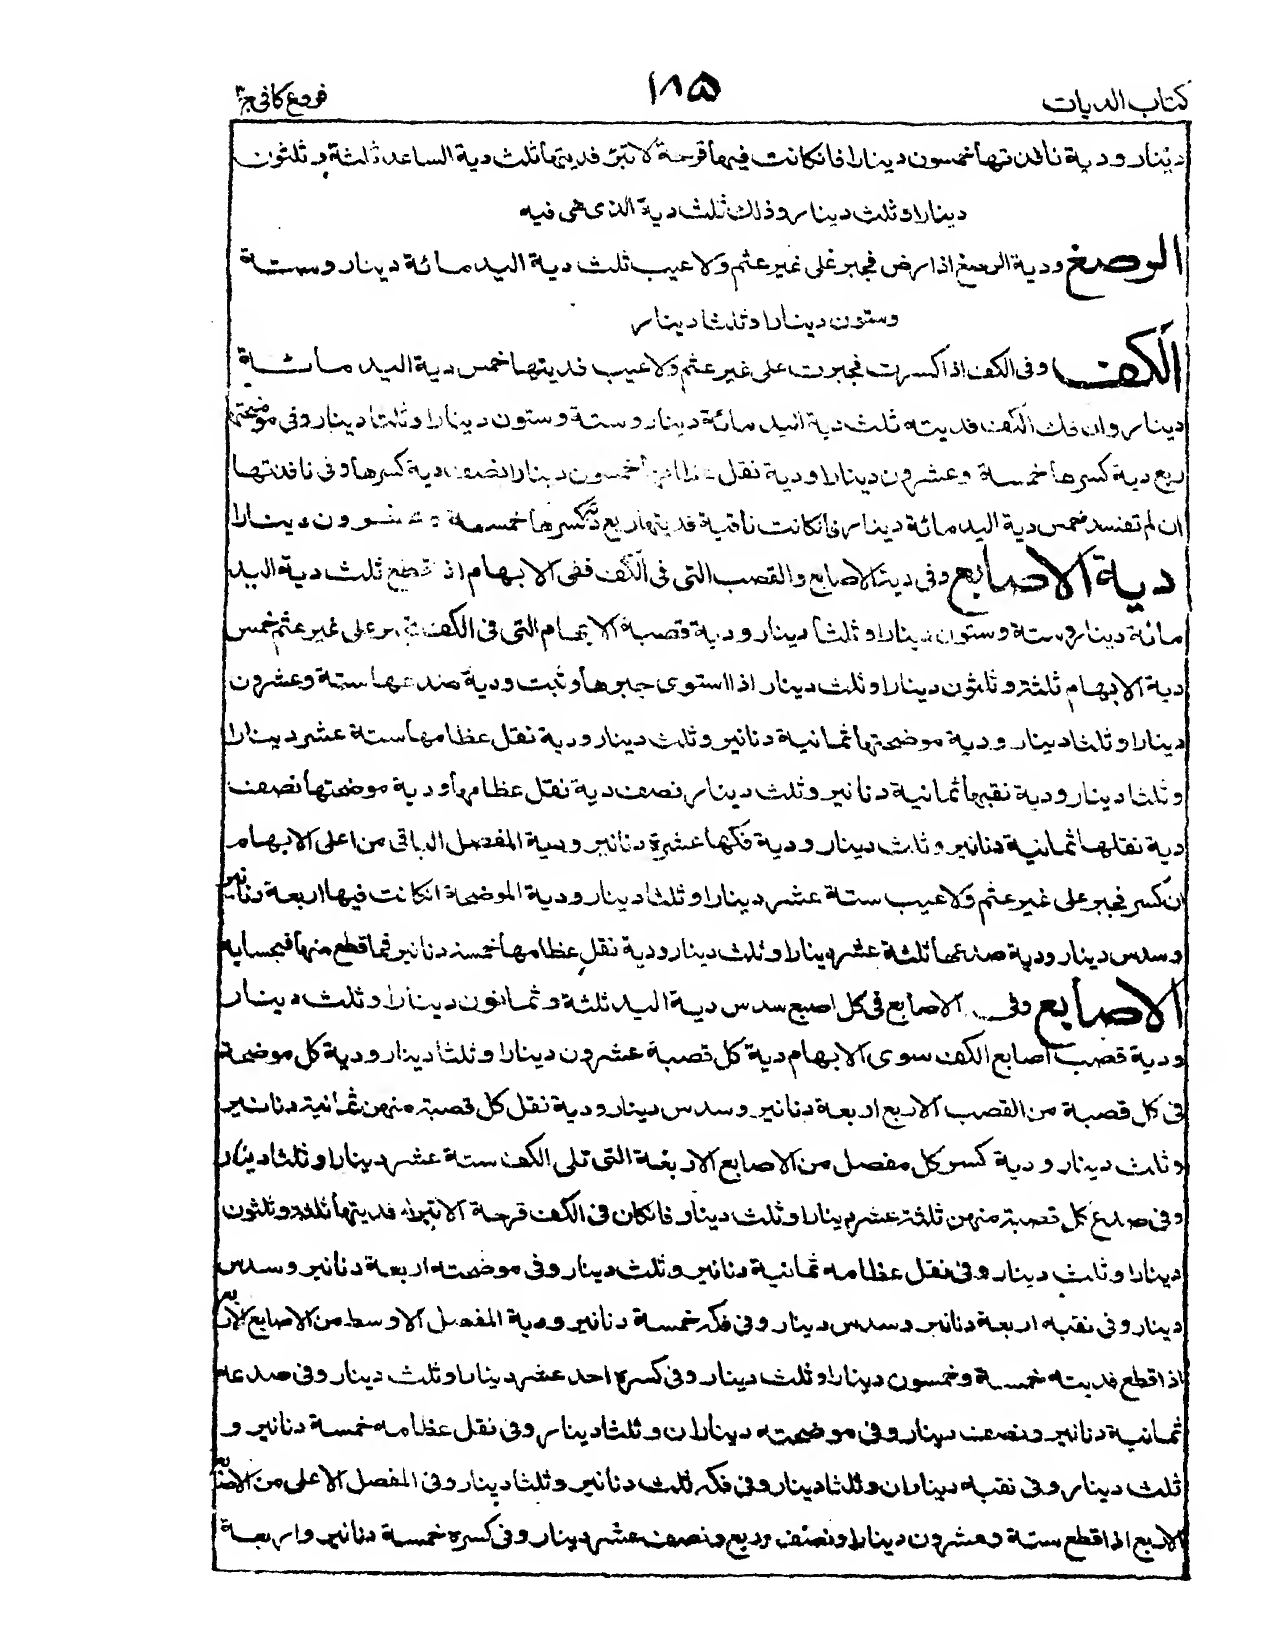 كتاب الديات
١٨٥
فروع كافى ج٣
دينار ودية نافذتها خمسون دينارا فانكانت فيها قرحة لا تبرئ فديتها ثلث دية الساعد ثلثة و ثلثون
دينارا و ثلث دينار وذلك ثلث دية الذى هى فيه
الرصغ ودية الرصغ اذا رض فجبر على غير عثم ولا عيب ثلث دية اليد مائة دينار وستة
وستون دينارا وثلثا دينار
الكف وفى الكف اذا كسرت فجبرت على غير عثم ولا عيب فديتها خمس دية اليد مائة
دينار وان فك الكف فديته ثلث دية اليد مائة دينار وستة وستون دينارا وثلثا دينار وفى موضحتها
ربع دية كسرها خمسة وعشرون دينارا ودية نقل عظامها خمسون دينارا نصف دية كسرها وفى نافذتها
ان لم تنسد خمس دية اليد مائة دينار فانكانت ناقبة فديتها ربع دية كسرها خمسة وعشرون دينارا
دية الاصابع وفى دية الاصابع والقصب التى فى الكف ففى الابهام اذا قطع ثلث دية اليد
مائة دينار وستة وستون دينارا وثلثا دينار ودية قصبة الابهام التى فى الكف تجبر على غير عثم خمس
دية الابهام ثلثة وثلثون دينارا وثلث دينار اذا استوى جبرها وثبت ودية صدعها ستة وعشرون
دينارا وثلثا دينار ودية موضحتها ثمانية دنانير وثلث دينار ودية نقل عظامها ستة عشر دينارا
وثلثا دينار ودية نقبها ثمانية دنانير وثلث دينار نصف دية نقل عظامها ودية موضحتها نصف
دية نقلها ثمانية دنانير وثلث دينار ودية فكها عشرة دنانير ودية المفصل الباقى من اعلى الابهام
ان كسر فجبر على غير عثم ولا عيب ستة عشر دينارا وثلثا دينار ودية الموضحة انكانت فيها اربعة دنانير
وسدس دينار ودية صدعها ثلثة عشر دينارا وثلث دينار ودية نقل عظامها خمسة دنانير فما قطع منها فبحسابه
الاصابع وفى الاصابع فى كل اصبع سدس دية اليد ثلثة وثمانون دينارا وثلث دينار
ودية قصب اصابع الكف سوى الابهام دية كل قصبة عشرون دينارا وثلثا دينار ودية كل موضحة
فى كل قصبة من القصب الاربع اربعة دنانير وسدس دينار ودية نقل كل قصبة منهن ثمانية دنانير
وثلث دينار ودية كسر كل مفصل من الاصابع الاربعة التى تلى الكف ستة عشر دينارا وثلثا دينار
وفى صدع كل قصبة منهن ثلثة عشر دينارا وثلث دينار فانكان فى الكف قرحة لا تبرا فديتها ثلثة وثلثون
دينارا وثلث دينار وفى نقل عظامه ثمانية دنانير وثلث دينار وفى موضحته اربعة دنانير وسدس
دينار وفى نقبه اربعة دنانير وسدس دينار وفى فكه خمسة دنانير ودية المفصل الاوسط من الاصابع الاربع
اذا قطع فديته خمسة وخمسون دينارا وثلث دينار وفى كسره احد عشر دينارا وثلث دينار وفى صدعه
ثمانية دنانير ونصف دينار وفى موضحته ديناران وثلثا دينار وفى نقل عظامه خمسة دنانير و
ثلث دينار وفى نقبه ديناران وثلثا دينار وفى فكه ثلث دنانير وثلثا دينار وفى المفصل الاعلى من الاصابع
الاربع اذا قطع ستة وعشرون دينارا ونصف وربع ونصف عشر دينار وفى كسره خمسة دنانير واربعة